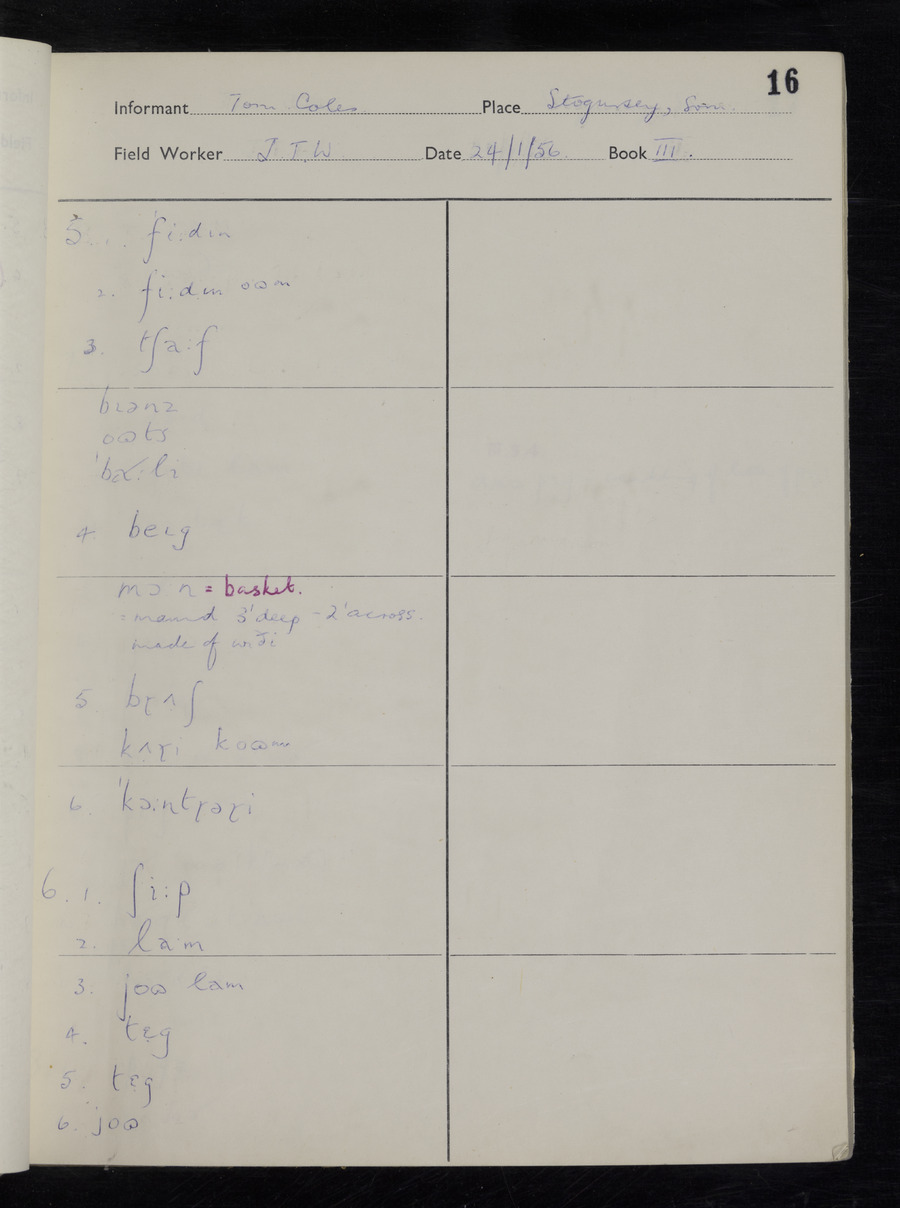 16
Informant Tom Coles Place Stogursey, Som.
Field Worker J.T.W Date 24/1/56. Book III.
5. ˈfi:dɪn
2. fi:dɪn oɷm
3. tʃa:f
bɪənz
oɷts
ˈbɑ:li
4. beɪg
mɔ:n = basket.
= maund 3' deep – 2' across.
made of wiði
5. bɽʌʃ
kʌɽi koɷm
6. ˈkɔ:ntɽəɽi
6. 1. ʃi:p
2. lam
3. joɷ lam
4. tɛg
5. tɛg
6. joɷ